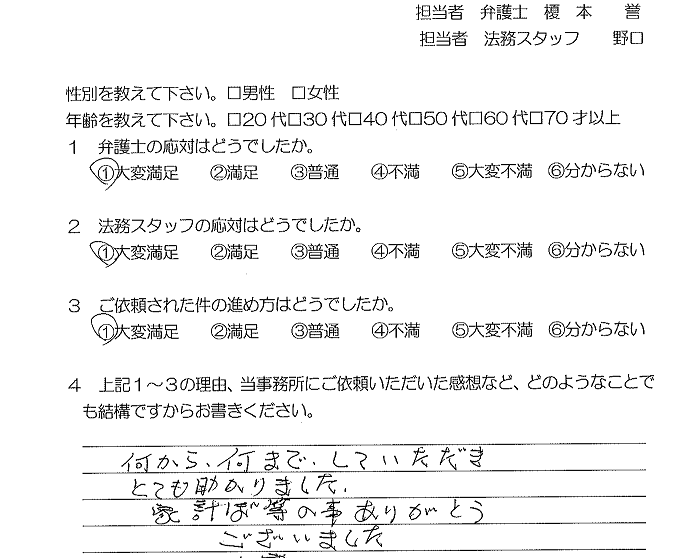 担当者　弁護士　榎　本　　誉
担当者　法務スタッフ　　野口
性別を教えて下さい。□男性　□女性
年齢を教えて下さい。□20代□30代□40代□50代□60代□70才以上
１　弁護士の応対はどうでしたか。
①大変満足　②満足　③普通　④不満　⑤大変不満　⑥分からない
２　法務スタッフの応対はどうでしたか。
①大変満足　②満足　③普通　④不満　⑤大変不満　⑥分からない
３　ご依頼された件の進め方はどうでしたか。
①大変満足　②満足　③普通　④不満　⑤大変不満　⑥分からない
４　上記１～３の理由、当事務所にご依頼いただいた感想など、どのようなことで
も結構ですからお書きください。
何から、何まで、していただき
とても助かりました、
家計ぼ等の事ありがとう
ございました